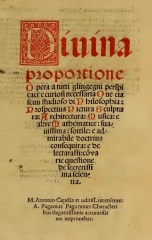 Diuina
proportione
Opera a tutti glingegni perspi
caci e curiosi necessaria Oue cia
scun studioso di Philosophia:
Prospectiua Pictura Sculptu
ra: Architectura: Musica: e
altre Mathematice: sua
uissima: sottile: e ad
mirabile doctrina
consequira: e de
lectarassi: cõva
rie questione
de secretissi
ma scien
tia.
M. Antonio Capella eruditiss. recensente:
A. Paganius Paganinus Characteri
bus elegantissimis accuratissi
me imprimebat.